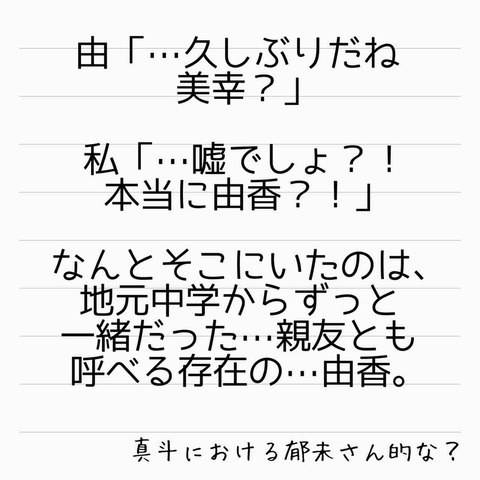 由「…久しぶりだね
美幸？」
私「…嘘でしょ？！
本当に由香？！」
なんとそこにいたのは、
地元中学からずっと
一緒だった…親友とも
呼べる存在の…由香。
真斗における郁未さん的な？